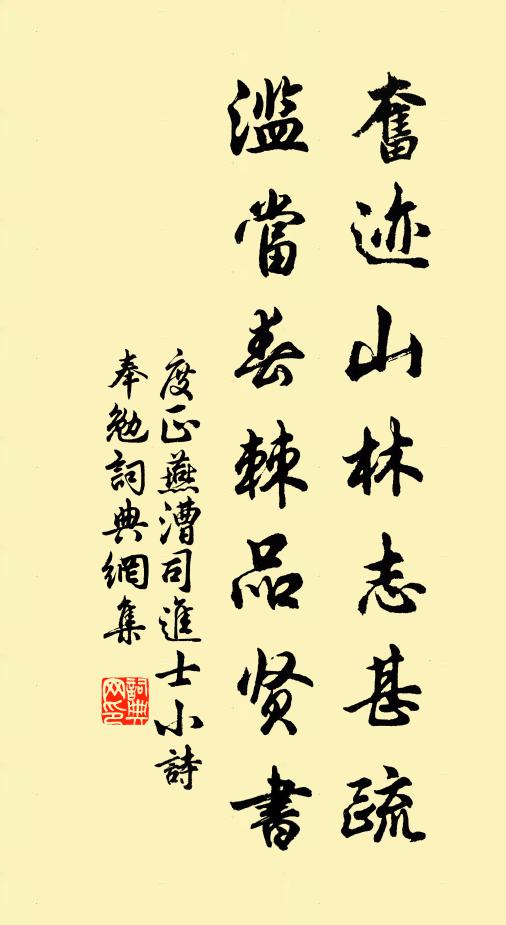 奮迹山林志甚疏
濫當春棘品贤書
度正燕漕司進士小詩
奉勉詞典網集
詞典
网印